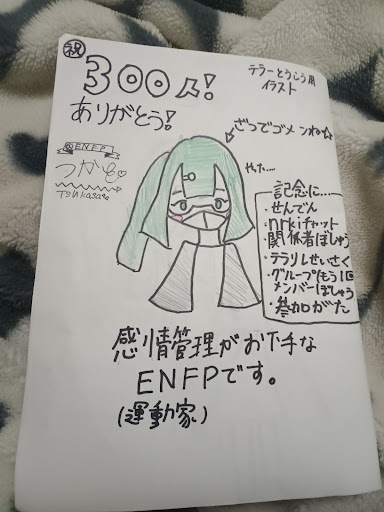 祝
300人!
ありがとう!
テラーとうこう用
イラスト
ENFP
つかさ
TSUKASA
ざつでゴメンね☆
やた....
記念に.....
・せんでん
・nrkiチャット
関係者ぼしゅう
・テラリレせいさく
・グループ(もう1回
メンバーぼしゅう
・参加がた
感情管理がお下手な
ENFPです。
(運動家)